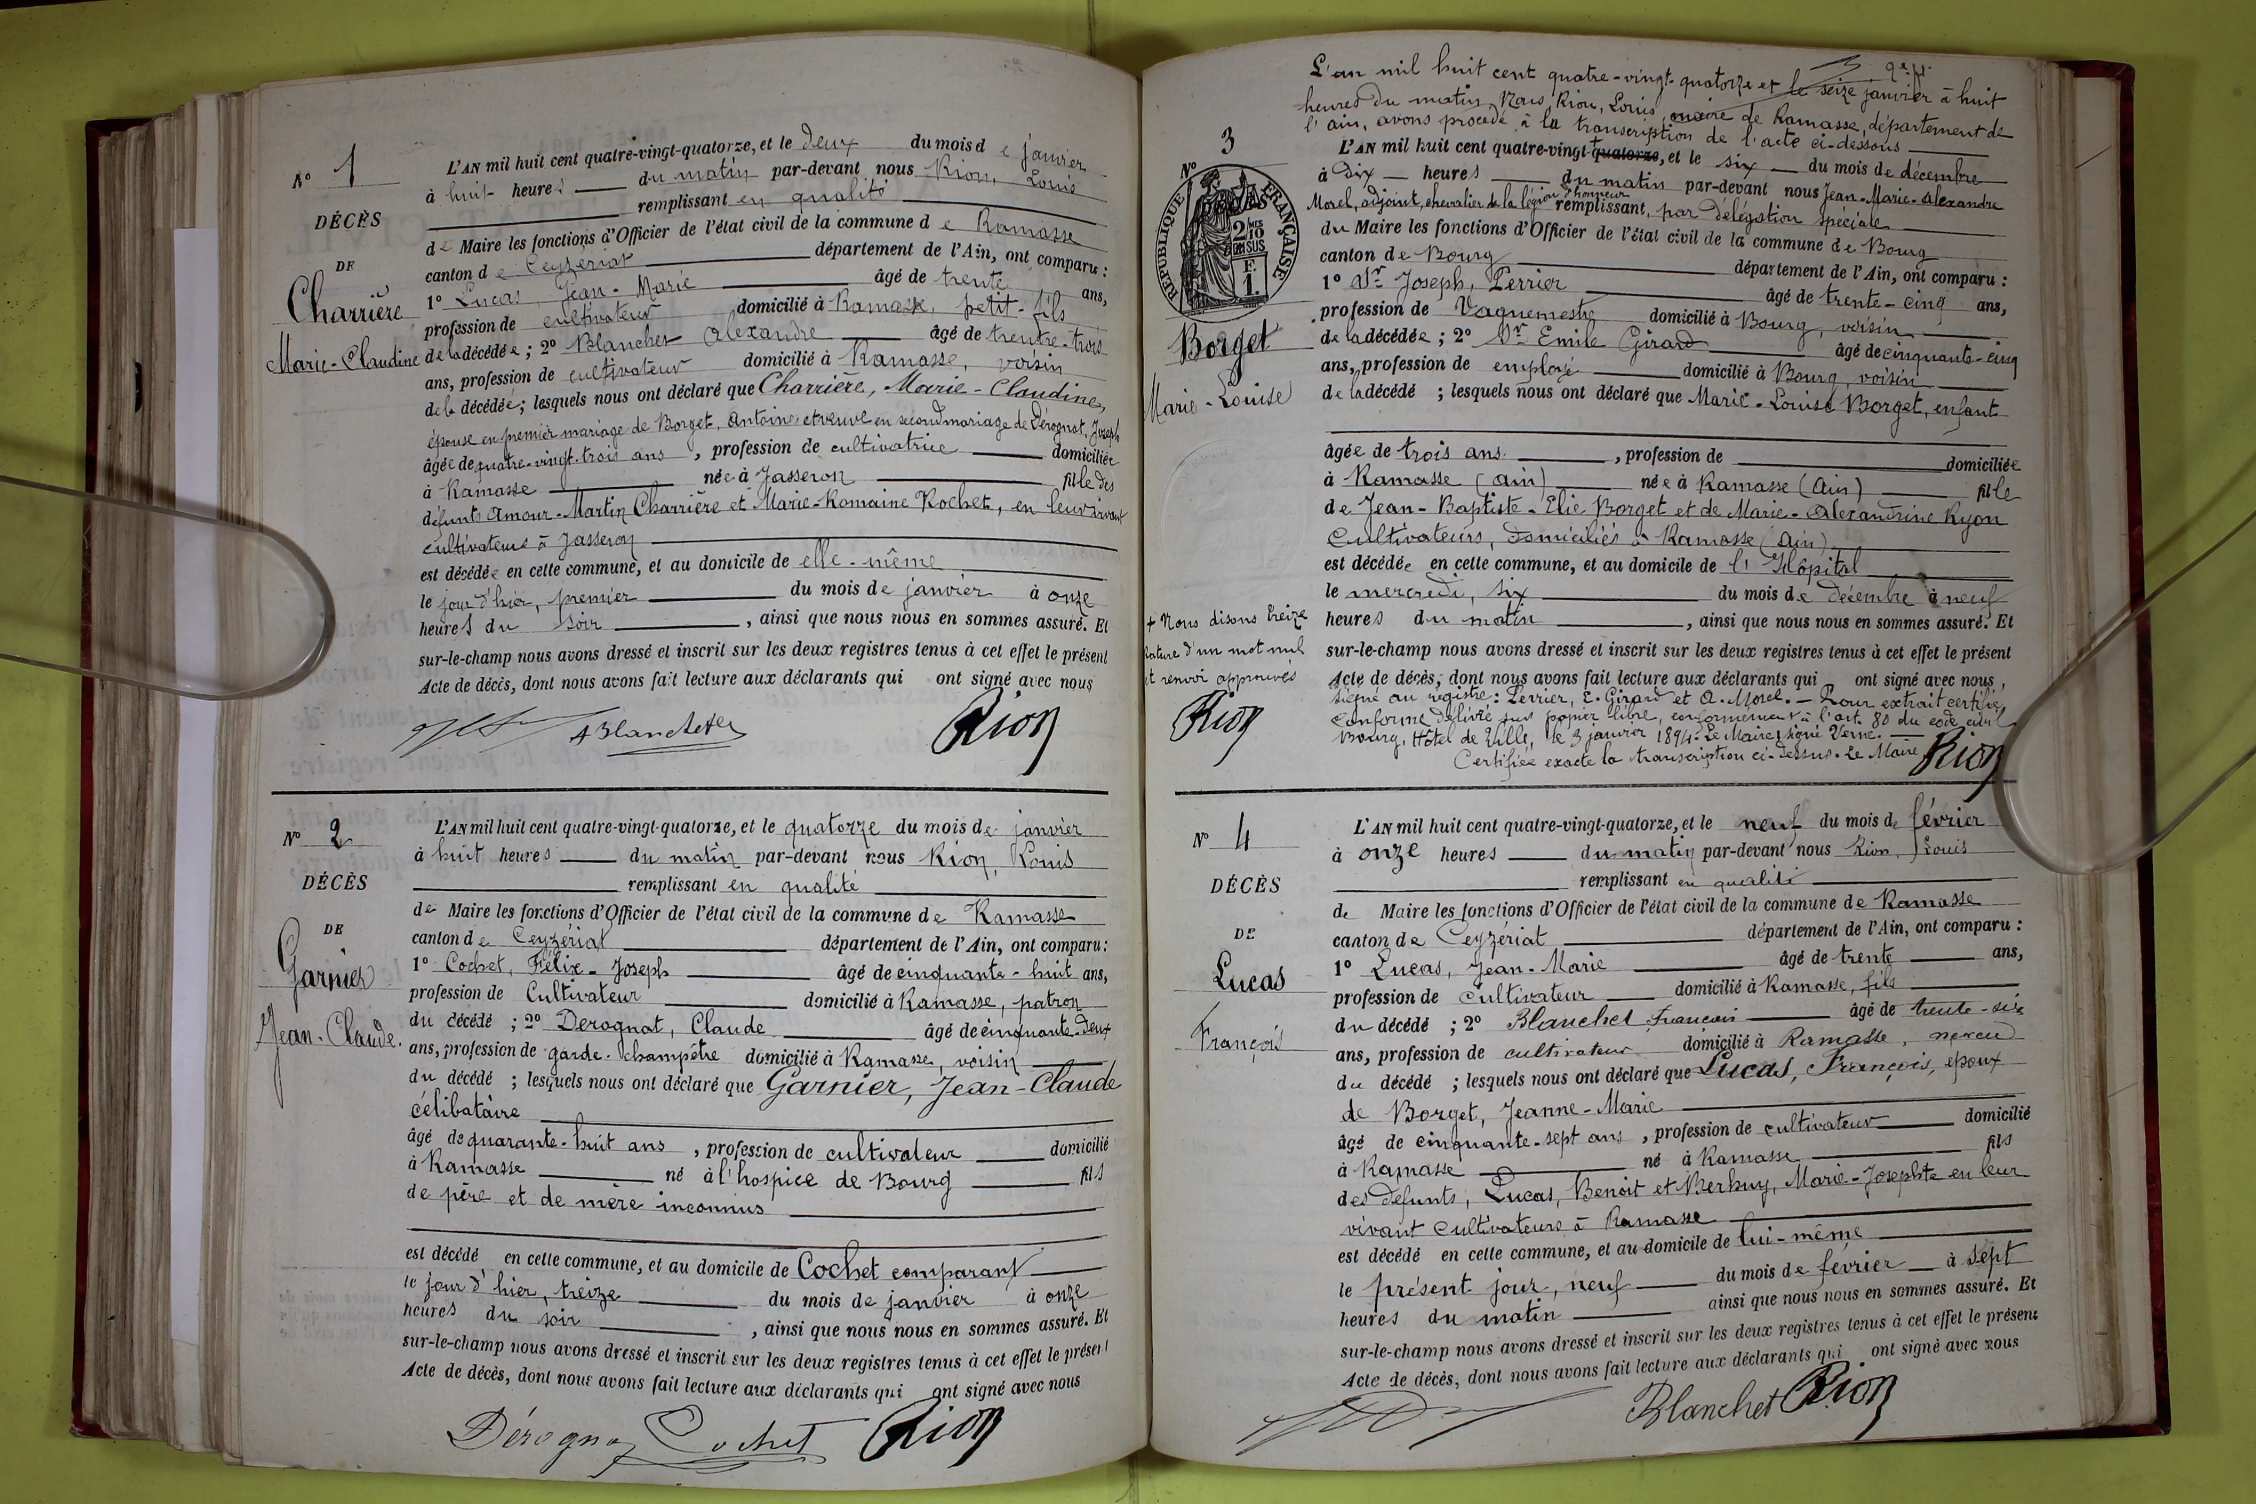 N° 1
DÉCÈS
DE
Charrière
Marie-Claudine
L'AN mil huit cent quatre-vingt-quatorze, et le deux du mois de janvier
à huit heures du matin par-devant nous Rion, Louis
remplissant en qualité
de Maire les fonctions d'Officier de l'état civil de la commune de Ramasse
canton de Ceyzériat département de l'Ain, ont comparu :
1° Lucas, Jean-Marie âgé de trente ans,
profession de cultivateur domicilié à Ramasse, petit-fils
de la décédée ; 2° Blanchet Alexandre âgé de trente-trois
ans, profession de cultivateur domicilié à Ramasse, voisin
de la décédée ; lesquels nous ont déclaré que Charrière, Marie-Claudine,
épouse en premier mariage de Borget, Antoine et veuve en second mariage de Dérognat, Joseph
âgée de quatre-vingt-trois ans, profession de cultivatrice domiciliée
à Ramasse née à Jasseron fille des
défunts Amour-Martin Charrière et Marie-Romaine Rochet, en leur vivant
cultivateurs à Jasseron
est décédée en cette commune, et au domicile de elle-même
le jour d'hier, premier du mois de janvier à onze
heures du soir, ainsi que nous nous en sommes assuré. Et
sur-le-champ nous avons dressé et inscrit sur les deux registres tenus à cet effet le présent
Acte de décès, dont nous avons fait lecture aux déclarants qui ont signé avec nous
ABlanchet Rion
N° 2
DÉCÈS
DE
Garnier
Jean-Claude.
L'AN mil huit cent quatre-vingt-quatorze, et le quatorze du mois de janvier
à huit heures du matin par-devant nous Rion, Louis
remplissant en qualité
de Maire les fonctions d'Officier de l'état civil de la commune de Ramasse
canton de Ceyzériat département de l'Ain, ont comparu :
1° Cochet, Félix-Joseph âgé de cinquante-huit ans,
profession de Cultivateur domicilié à Ramasse, patron
du décédé ; 2° Derognat, Claude âgé de cinquante-deux
ans, profession de garde-champêtre domicilié à Ramasse, voisin
du décédé ; lesquels nous ont déclaré que Garnier, Jean-Claude
célibataire
âgé de quarante-huit ans, profession de cultivateur domicilié
à Ramasse né à l'hospice de Bourg fils
de père et de mère inconnus
est décédé en cette commune, et au domicile de Cochet comparant
le jour d'hier, treize du mois de janvier à onze
heures du soir, ainsi que nous nous en sommes assuré. Et
sur-le-champ nous avons dressé et inscrit sur les deux registres tenus à cet effet le présent
Acte de décès, dont nous avons fait lecture aux déclarants qui ont signé avec nous
Dérognat Cochet Rion
L'an mil huit cent quatre-vingt-quatorze et le seize janvier à huit
heures du matin, Nous Rion, Louis, maire de Ramasse, département de
l'ain, avons procédé à la transcription de l'acte ci-dessous
N° 3
RÉPUBLIQUE FRANÇAISE
2/10 EN SUS
F. 1.
Borget
Marie-Louise
L'AN mil huit cent quatre-vingt-quatorze, et le six du mois de décembre
à dix heures du matin par-devant nous Jean-Marie-Alexandre
Morel, adjoint, chevalier de la légion d'honneur remplissant, par délégation spéciale
du Maire les fonctions d'Officier de l'état civil de la commune de Bourg
canton de Bourg département de l'Ain, ont comparu :
1° Sr Joseph, Perrier âgé de trente-cinq ans,
profession de Vaguemestre domicilié à Bourg, voisin
de la décédée ; 2° Sr Emile Girard âgé de cinquante-cinq
ans, profession de employé domicilié à Bourg, voisin
de la décédé ; lesquels nous ont déclaré que Marie-Louise Borget, enfant
âgée de trois ans, profession de domiciliée
à Ramasse (Ain) née à Ramasse (Ain) fille
de Jean-Baptiste-Elie Borget et de Marie-Alexandrine Ryon
Cultivateurs, domiciliés à Ramasse (Ain)
est décédée en cette commune, et au domicile de l'Hôpital
le mercredi, six du mois de décembre à neuf
heures du matin, ainsi que nous nous en sommes assuré. Et
sur-le-champ nous avons dressé et inscrit sur les deux registres tenus à cet effet le présent
Acte de décès, dont nous avons fait lecture aux déclarants qui ont signé avec nous,
Signé au registre : Perrier, E. Girard et A. Morel. — Pour extrait certifié
conforme délivré sur papier libre, conformément à l'art. 80 du code civil
Bourg, Hôtel de Ville, le 3 janvier 1894. Le Maire, signé Verne.
Certifiée exacte la transcription ci-dessus. Le Maire Rion
+ Nous disons treize
rature d'un mot nul
et renvoi approuvés
Rion
N° 4
DÉCÈS
DE
Lucas
François
L'AN mil huit cent quatre-vingt-quatorze, et le neuf du mois de février
à onze heures du matin par-devant nous Rion, Louis
remplissant en qualité
de Maire les fonctions d'Officier de l'état civil de la commune de Ramasse
canton de Ceyzériat département de l'Ain, ont comparu :
1° Lucas, Jean-Marie âgé de trente ans,
profession de cultivateur domicilié à Ramasse, fils
du décédé ; 2° Blanchet François âgé de trente-six
ans, profession de cultivateur domicilié à Ramasse, neveu
du décédé ; lesquels nous ont déclaré que Lucas, François, époux
de Borget, Jeanne-Marie
âgé de cinquante-sept ans, profession de cultivateur domicilié
à Ramasse né à Ramasse fils
des défunts, Lucas, Benoit et Berhuy, Marie-Josephte en leur
vivant cultivateurs à Ramasse
est décédé en cette commune, et au domicile de lui-même
le présent jour, neuf du mois de février à sept
heures du matin ainsi que nous nous en sommes assuré. Et
sur-le-champ nous avons dressé et inscrit sur les deux registres tenus à cet effet le présent
Acte de décès, dont nous avons fait lecture aux déclarants qui ont signé avec nous
Blanchet Rion